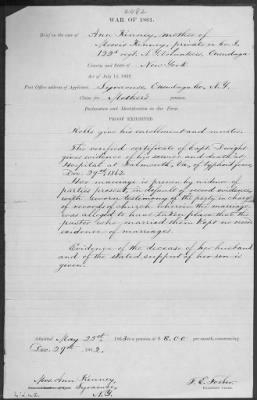 2482
WAR OF 1861.
Brief in the case of Ann Kinney, mother of
Morris Kinney, private in Co. I
122d regt. N.Y. Volunteers, Onondaga
County and State of New York
Act of July 14, 1862.
Post Office address of Applicant, Syracuse, Onondaga Co, N.Y.
Claim for Mother's pension.
Declaration and Identification in due Form.
PROOF EXHIBITED
Rolls give his enrollment and muster.
The verified certificate of Capt. Dwight
gives evidence of his service and death at
Hospital at Falmouth, Va. of Typhoid fever
Dec. 29th 1862.
Her marriage is proven by evidence of
parties present, in default of record evidence,
with sworn testimony of the party in charge
of records of church wherein the marriage
was alleged to have taken place that the
pastor who married them kept no such
evidence of marriages.
Evidence of the decease of her husband
and of the stated support of her son is
given.
Admitted May 25th 1863, at $ 8.00 per month, commencing
Dec. 29th 1862.
Mrs. Ann Kinney,
Syracuse,
N.Y.
Examining Clerk.